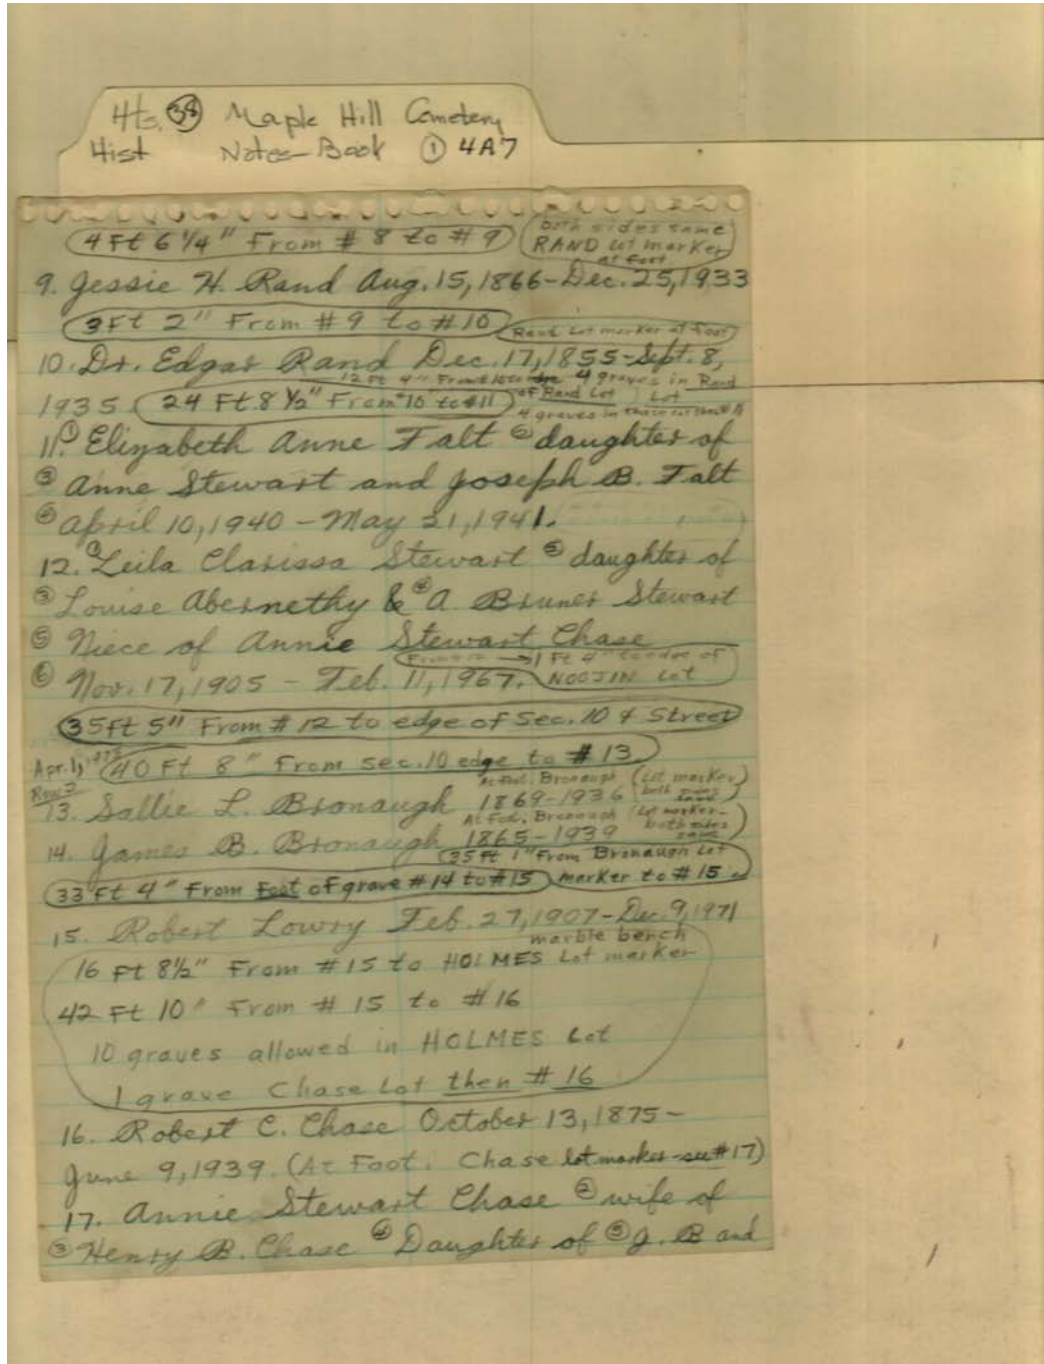 Hts. 38 Maple Hill Cemetery
Hist Notes-Book ① 4A7
4 Ft 6 1/4" From # 8 to # 9
both sides same
RAND Lot marker
at foot
9. Jessie H. Rand Aug. 15, 1866-Dec. 25, 1933
3 Ft 2" From # 9 to # 10
Rand Lot marker at foot
10. Dr. Edgar Rand Dec. 17, 1855-Sept. 8,
12 Ft 4" From # 10 to edge 4 graves in Rand
of Rand Lot Lot
1935. 24 Ft. 8 1/2" From # 10 to # 11
4 graves in
11. ① Elizabeth Anne Falt ② daughter of
③ Anne Stewart and Joseph B. Falt
④ April 10, 1940 - May 21, 1941.
12. ① Leila Clarissa Stewart ② daughter of
③ Louise Abernethy & ④ A. Bruner Stewart
⑤ Niece of Annie Stewart Chase
From # 12 → 1 Ft 4" to edge of
⑥ Nov. 17, 1905 - Feb. 11, 1967. NOOJIN Lot
35 ft 5" From # 12 to edge of Sec. 10 & Street
Apr. 1, 1973 40 Ft 8" From sec. 10 edge to # 13
Row 2
At Foot, Bronaugh (Lot marker)
both sides same
13. Sallie L. Bronaugh 1869-1936
At Foot, Bronaugh (Lot marker-
both sides same)
14. James B. Bronaugh 1865-1939
35 Ft 1" From Bronaugh Lot
33 Ft 4" From Foot of grave # 14 to # 15 marker to # 15.
15. Robert Lowry Feb. 27, 1907-Dec. 9, 1971
marble bench
16 Ft 8 1/2" From # 15 to HOLMES Lot marker
42 Ft 10" From # 15 to # 16
10 graves allowed in HOLMES Lot
1 grave Chase Lot then # 16
16. Robert C. Chase October 13, 1875-
June 9, 1939. (At Foot. Chase lot marker-see # 17)
17. Annie Stewart Chase ② wife of
③ Henry B. Chase ④ Daughter of ⑤ J. B and